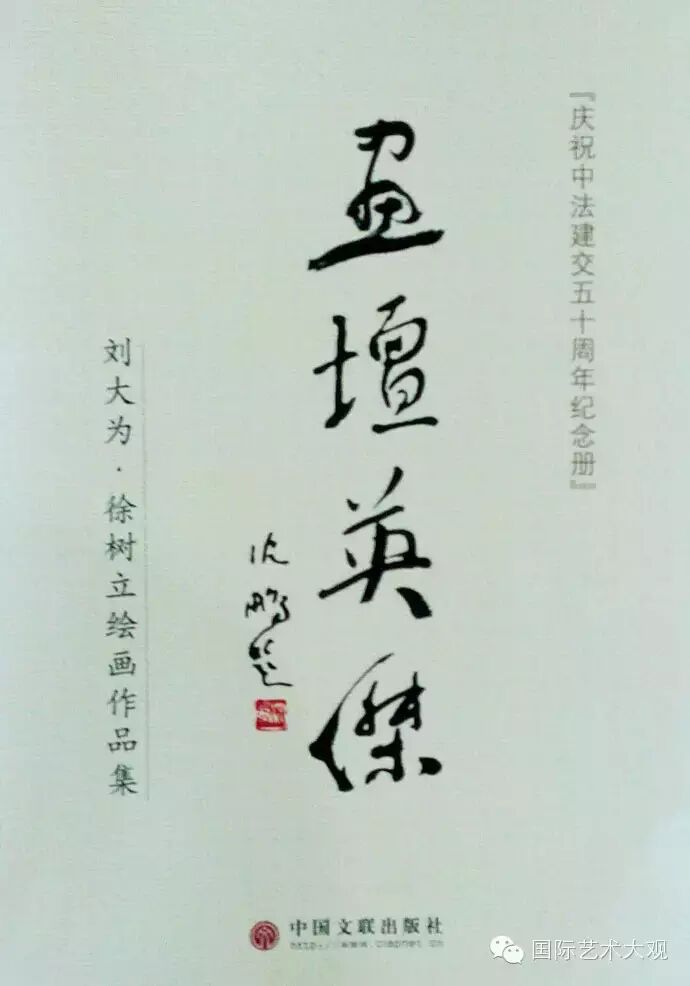 『庆祝中法建交五十周年纪念册』
画壇英傑
沈鹏题
刘大为·徐树立绘画作品集
中国文联出版社
国际艺术大观